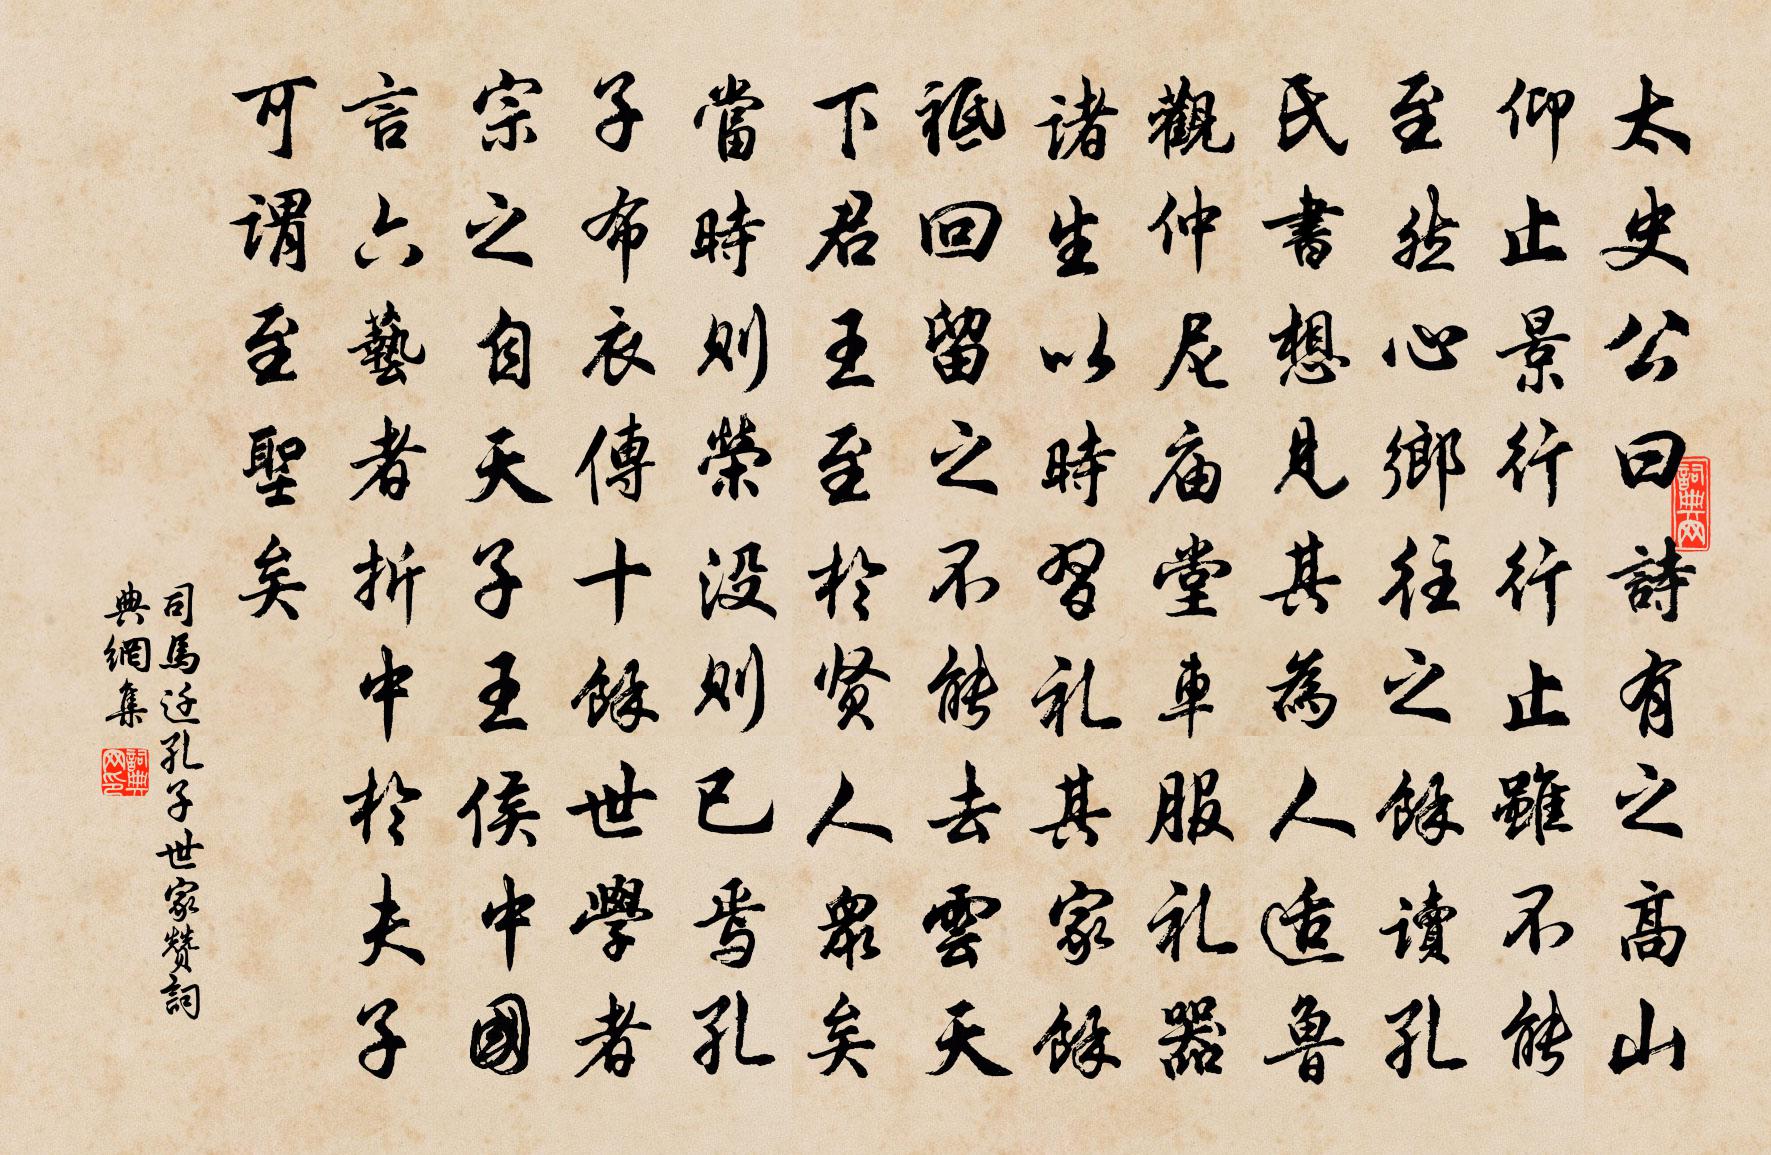 太史公曰詩有之高山
仰止景行行止雖不能
至然心鄉往之餘讀孔
氏書想見其為人适魯
觀仲尼庙堂車服礼器
诸生以時習礼其家餘
祗回留之不能去雲天
下君王至於贤人眾矣
當時則榮没則已焉孔
子布衣傳十餘世學者
宗之自天子王侯中國
言六藝者折中於夫子
可谓至聖矣
司馬迁孔子世家赞詞
典網集
詞典网
詞典网印